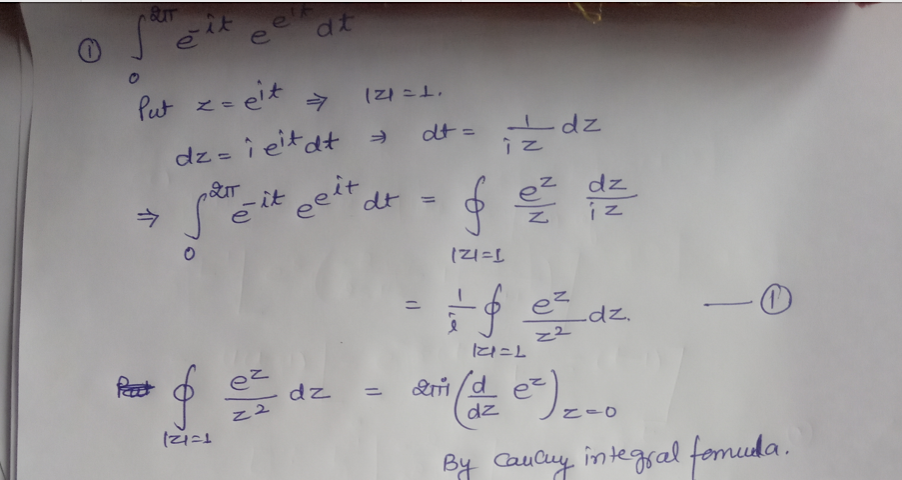 ① ∫₀^{2π} e^{-it} e^{e^{it}} dt
Put z = e^{it} ⇒ |z| = 1.
dz = i e^{it} dt ⇒ dt = \frac{1}{iz} dz
⇒ ∫₀^{2π} e^{-it} e^{e^{it}} dt = ∮_{|z|=1} \frac{e^z}{z} \frac{dz}{iz}
= \frac{1}{i} ∮_{|z|=1} \frac{e^z}{z^2} dz. — ①
∮_{|z|=1} \frac{e^z}{z^2} dz = 2πi (\frac{d}{dz} e^z)_{z=0}
By Cauchy integral fomula.